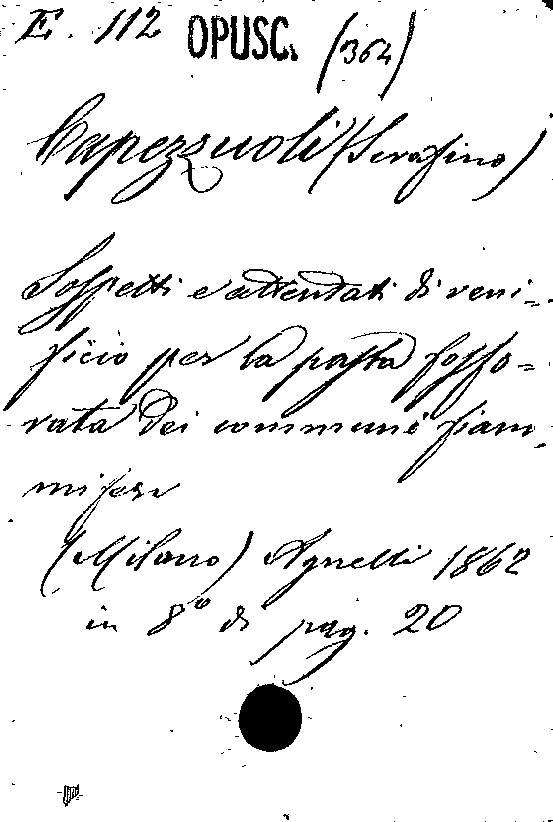 E. 112 OPUSC. (364)
Capezzuoli (Serafino)
Sospetti e attentati di veni-
ficio per la pasta fosfo=
rata dei communi fiam-
miferi
(Milano) Agnelli 1862
in 8° di pag. 20